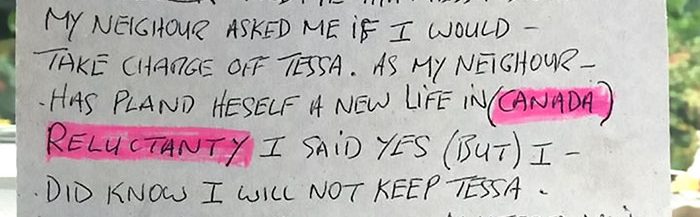 MY NEIGHOUR ASKED ME IF I WOULD -
TAKE CHARGE OFF TESSA. AS MY NEIGHOUR -
. HAS PLAND HESELF A NEW LIFE IN (CANADA)
RELUCTANTY I SAID YES (BUT) I -
. DID KNOW I WILL NOT KEEP TESSA .